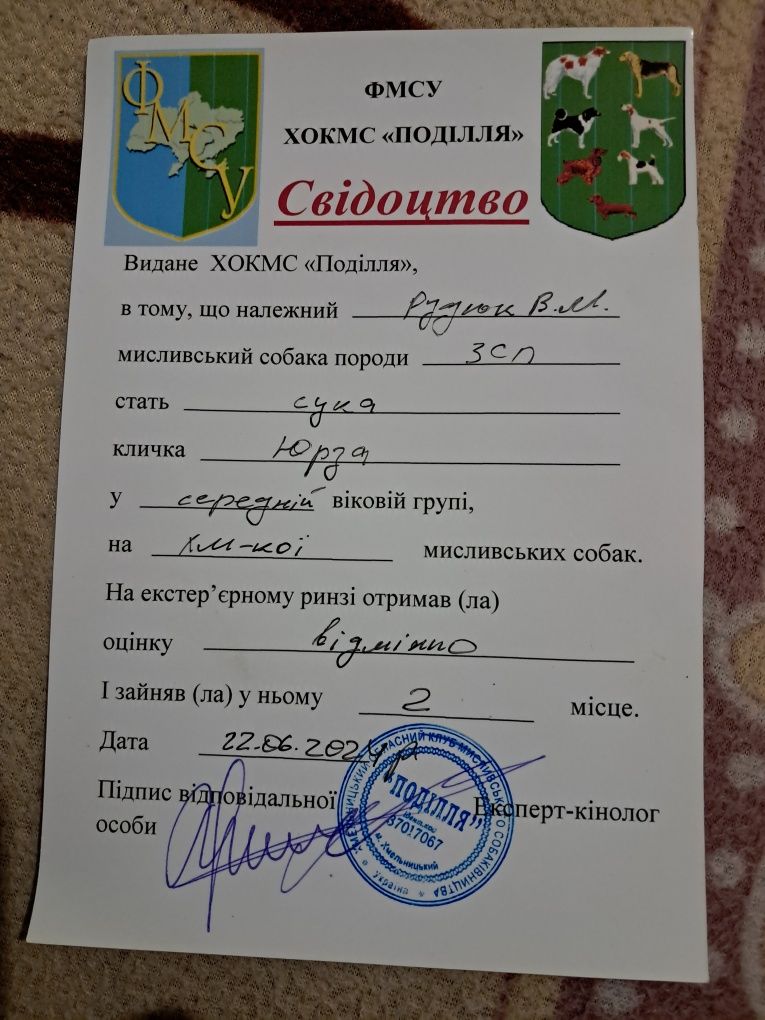 ФМСУ
ФМСУ
ХОКМС «ПОДІЛЛЯ»
Свідоцтво
Видане ХОКМС «Поділля»,
в тому, що належний Рудюк В.М.
мисливський собака породи ЗСЛ
стать сука
кличка Юрза
У середній віковій групі,
на ХМ-кої мисливських собак.
На екстер’єрному ринзі отримав (ла)
оцінку відмінно
І зайняв (ла) у ньому 2 місце.
Дата 22.06.2024 р
Підпис відповідальної особи
Експерт-кінолог
ХМЕЛЬНИЦЬКИЙ ОБЛАСНИЙ КЛУБ МИСЛИВСЬКОГО СОБАКІВНИЦТВА
"ПОДІЛЛЯ"
37017067
м. Хмельницький
Україна